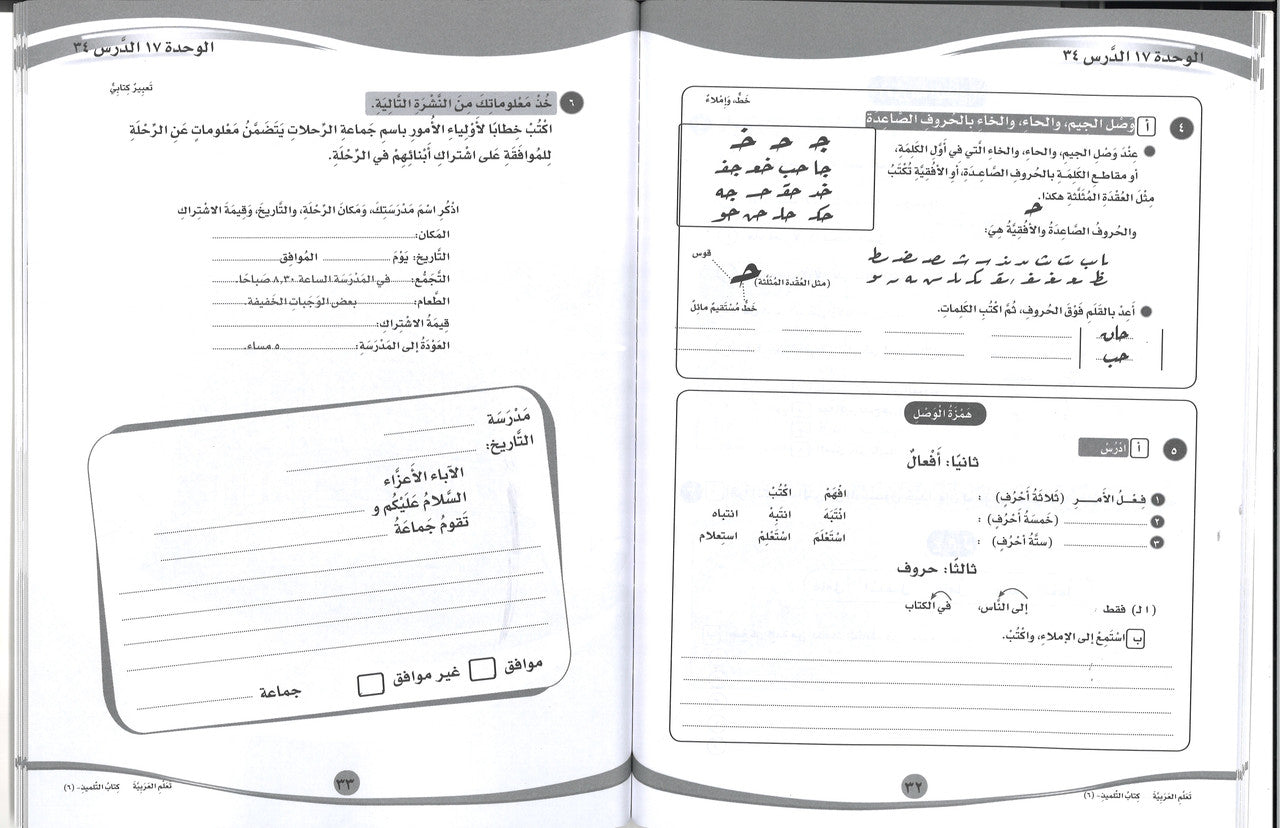 الوحدة ١٧ الدَّرس ٣٤
خَطٌّ، وَإِمْلاءٌ
٤ أ وَصْل الجيم، والحاء، والخاء بالحُروف الصّاعِدَة
عِنْدَ وَصْل الجيمِ، والحاءِ، والخاء الَّتي في أوَّل الكَلِمَةِ،
أو مقاطع الكَلِمَةِ بالحُروفِ الصّاعِدَةِ، أو الأُفُقيَّةِ تُكْتَبُ
مِثْلَ العُقْدَةِ المُثَلَّثَةِ هكذا. حـ
والحُروفُ الصّاعِدَةُ والأُفُقيَّةُ هِيَ:
جـ حـ خـ
جا حب خو جف
حكـ حلـ حن حو
قوس
(مثل العُقدة المُثلَّثة)
خَطٌّ مُسْتَقيمٌ مائِلٌ
أَعِدْ بالقَلَمِ فَوْقَ الحُروف، ثُمَّ اكْتُبِ الكَلِماتِ.
حب
هَمْزَةُ الْوَصْلِ
٥ أ ادْرُسْ
ثانيًا: أَفْعالٌ
١ فِعْلُ الأَمْـرِ (ثَلاثَةُ أحْرُفٍ) : افْهَمْ اكْتُبْ
٢ (خَمسَةُ أحْرُفٍ) : انْتَبَهَ انتَبِهْ انتباه
٣ (ستَّةُ أحْرُفٍ) : اسْتَعْلَمَ اسْتَعْلِمْ استِعلام
ثالثًا: حروف
(الـ) فقط إلى النَّاس، في الكتاب
ب اسْتَمِعْ إلى الإملاءِ، واكْتُبْ.
٣٢
تَعَلُّم العَرَبِيَّة كِتابُ التِّلميذِ- (٦)
الوحدة ١٧ الدَّرس ٣٤
تَعبِيرٌ كِتابِيٌّ
٦ خُذْ مَعْلوماتكَ مِنَ النَّشْرَةِ التَّاليَةِ.
اكْتُبْ خِطابًا لأَوْلِياءِ الأُمورِ باسمِ جَماعةِ الرِّحلاتِ يَتَضَمَّنُ مَعْلوماتٍ عَنِ الرِّحْلَةِ
لِلمُوافَقَةِ عَلى اشتراكِ أبْنائِهِمْ في الرِّحْلَةِ.
اذْكُرِ اسْمَ مَدْرَسَتِكَ، وَمَكانَ الرِّحْلَةِ، والتَّاريخَ، وَقِيمَةَ الاشْتِراكِ
المَكان:
التَّاريخ: يَوْمَ المُوافِق
التَّجَمُّع: في المَدْرَسَة الساعة ٨,٣٠ صَباحًا.
الطَّعام: بعض الوَجَباتِ الخَفيفَة.
قِيمَةُ الاشْتِراك:
العَوْدَةُ إلى المَدْرَسَةِ: ٥ مساء.
مَدْرَسَة
التَّاريخ:
الآباء الأَعِزَّاء
السَّلامُ عَلَيْكُم و
تَقومُ جَماعَةُ
موافق غير موافق
جماعة
٣٣
تَعَلُّم العَرَبِيَّة كِتابُ التِّلميذِ- (٦)